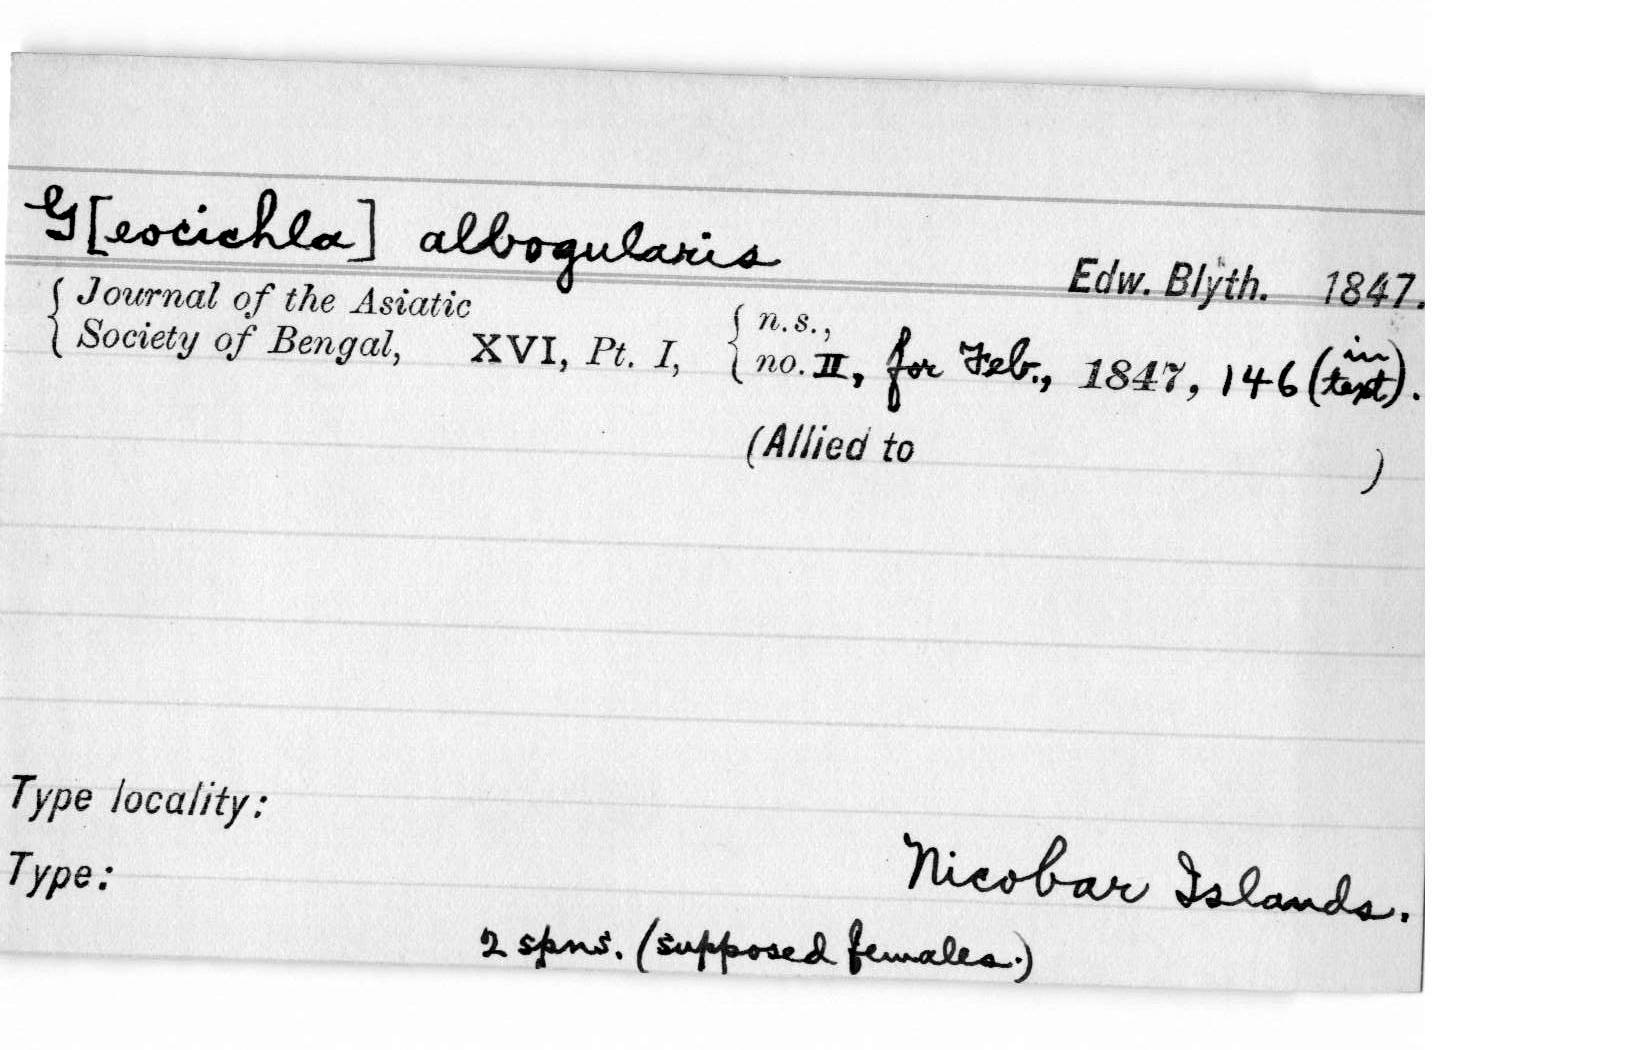 G[eocichla] albogularis
Edw. Blyth. 1847.
{ Journal of the Asiatic
Society of Bengal, XVI, Pt. I, { n.s.,
no. II, for Feb., 1847, 146 (in text).
(Allied to )
Type locality:
Nicobar Islands.
Type:
2 spns. (supposed females.)